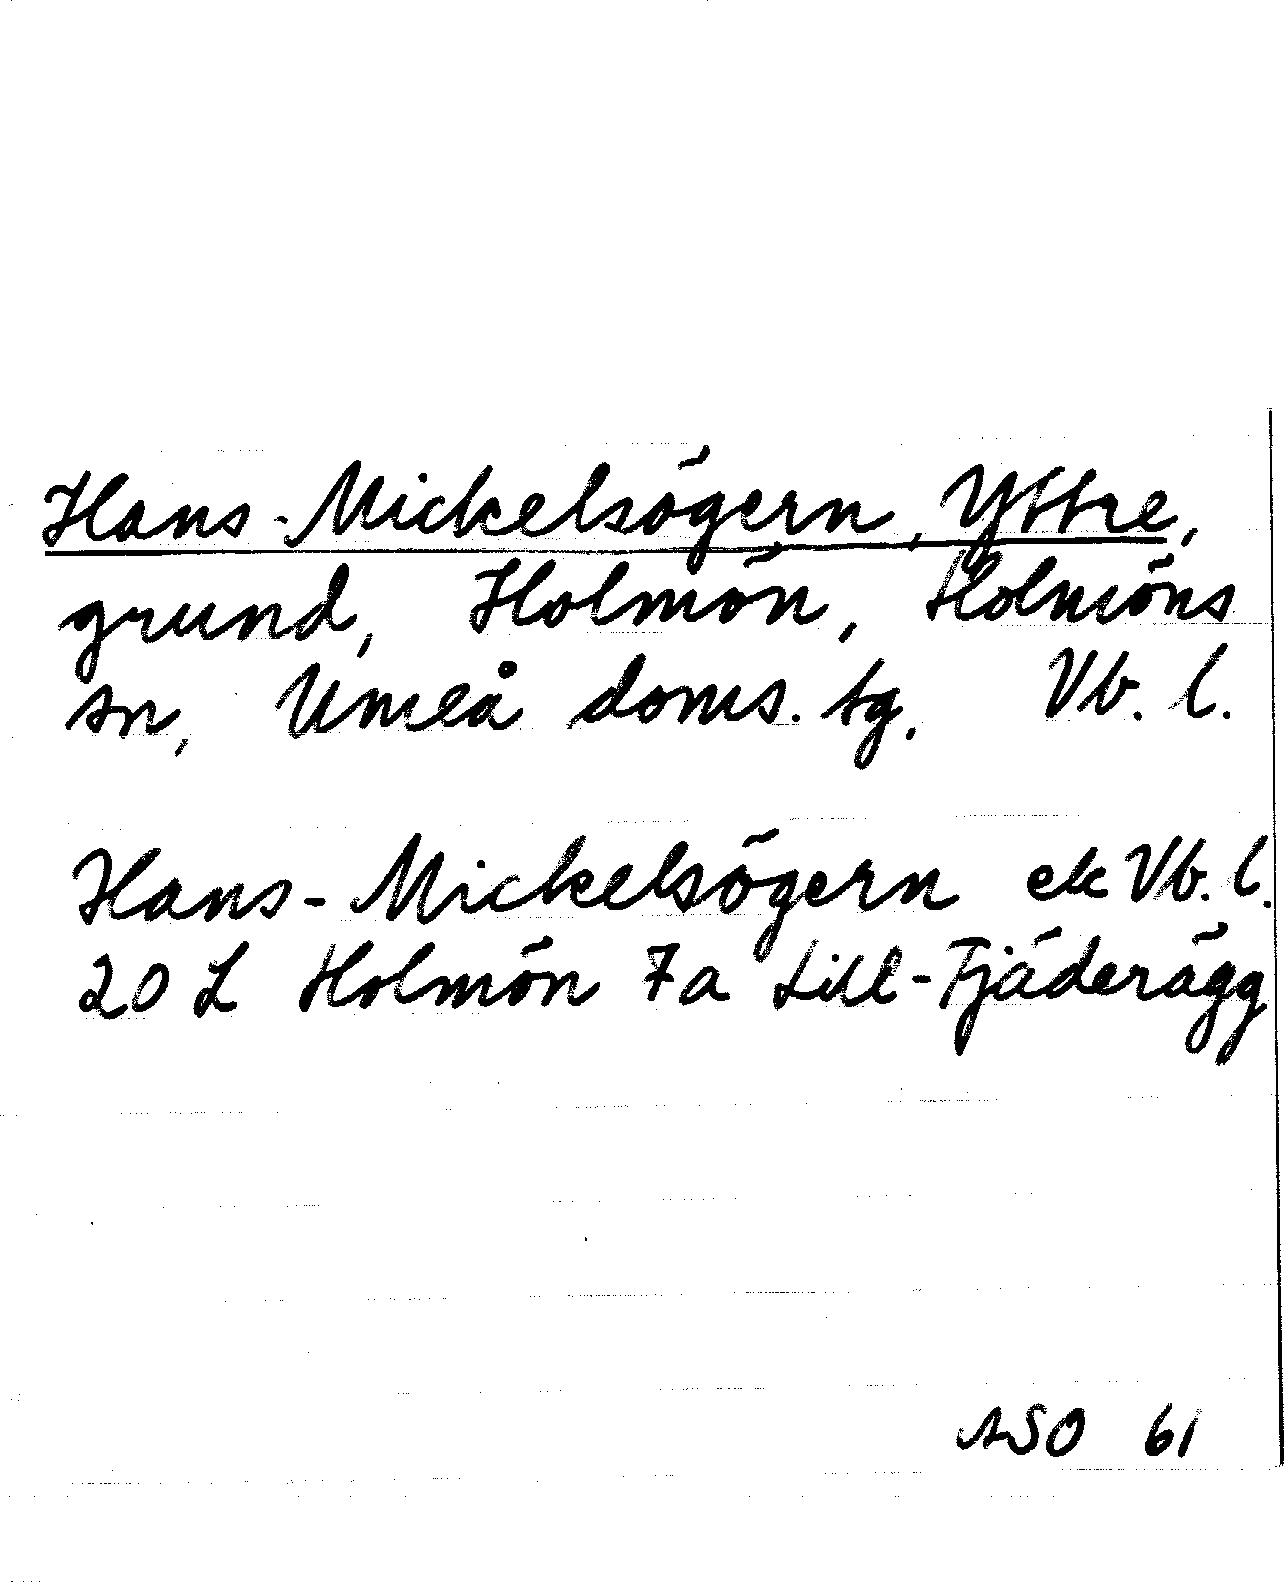 Hans-Mickelsögern, Yttre,
grund, Holmön, Holmöns
sn, Umeå doms. tg. Vb. l.
Hans-Mickelsögern ek Vb. l.
20 L Holmön 7a Lill-Fjäderägg
ASO 61